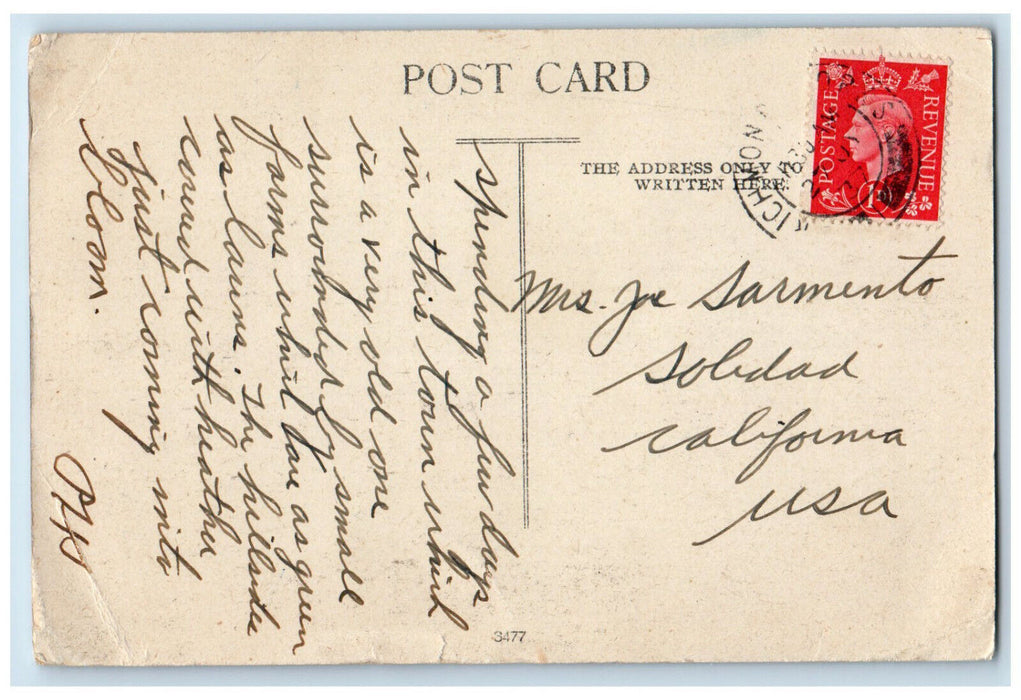 POST CARD
THE ADDRESS ONLY TO
WRITTEN HERE.
POSTAGE
REVENUE
RICHMOND
spending a few days
in this town which
is a very old one
surrounded by small
farms which are as green
as lawns. The hillsides
covered with heather
just coming into
bloom.
Mrs. Joe Sarmento
Soledad
California
USA
3477